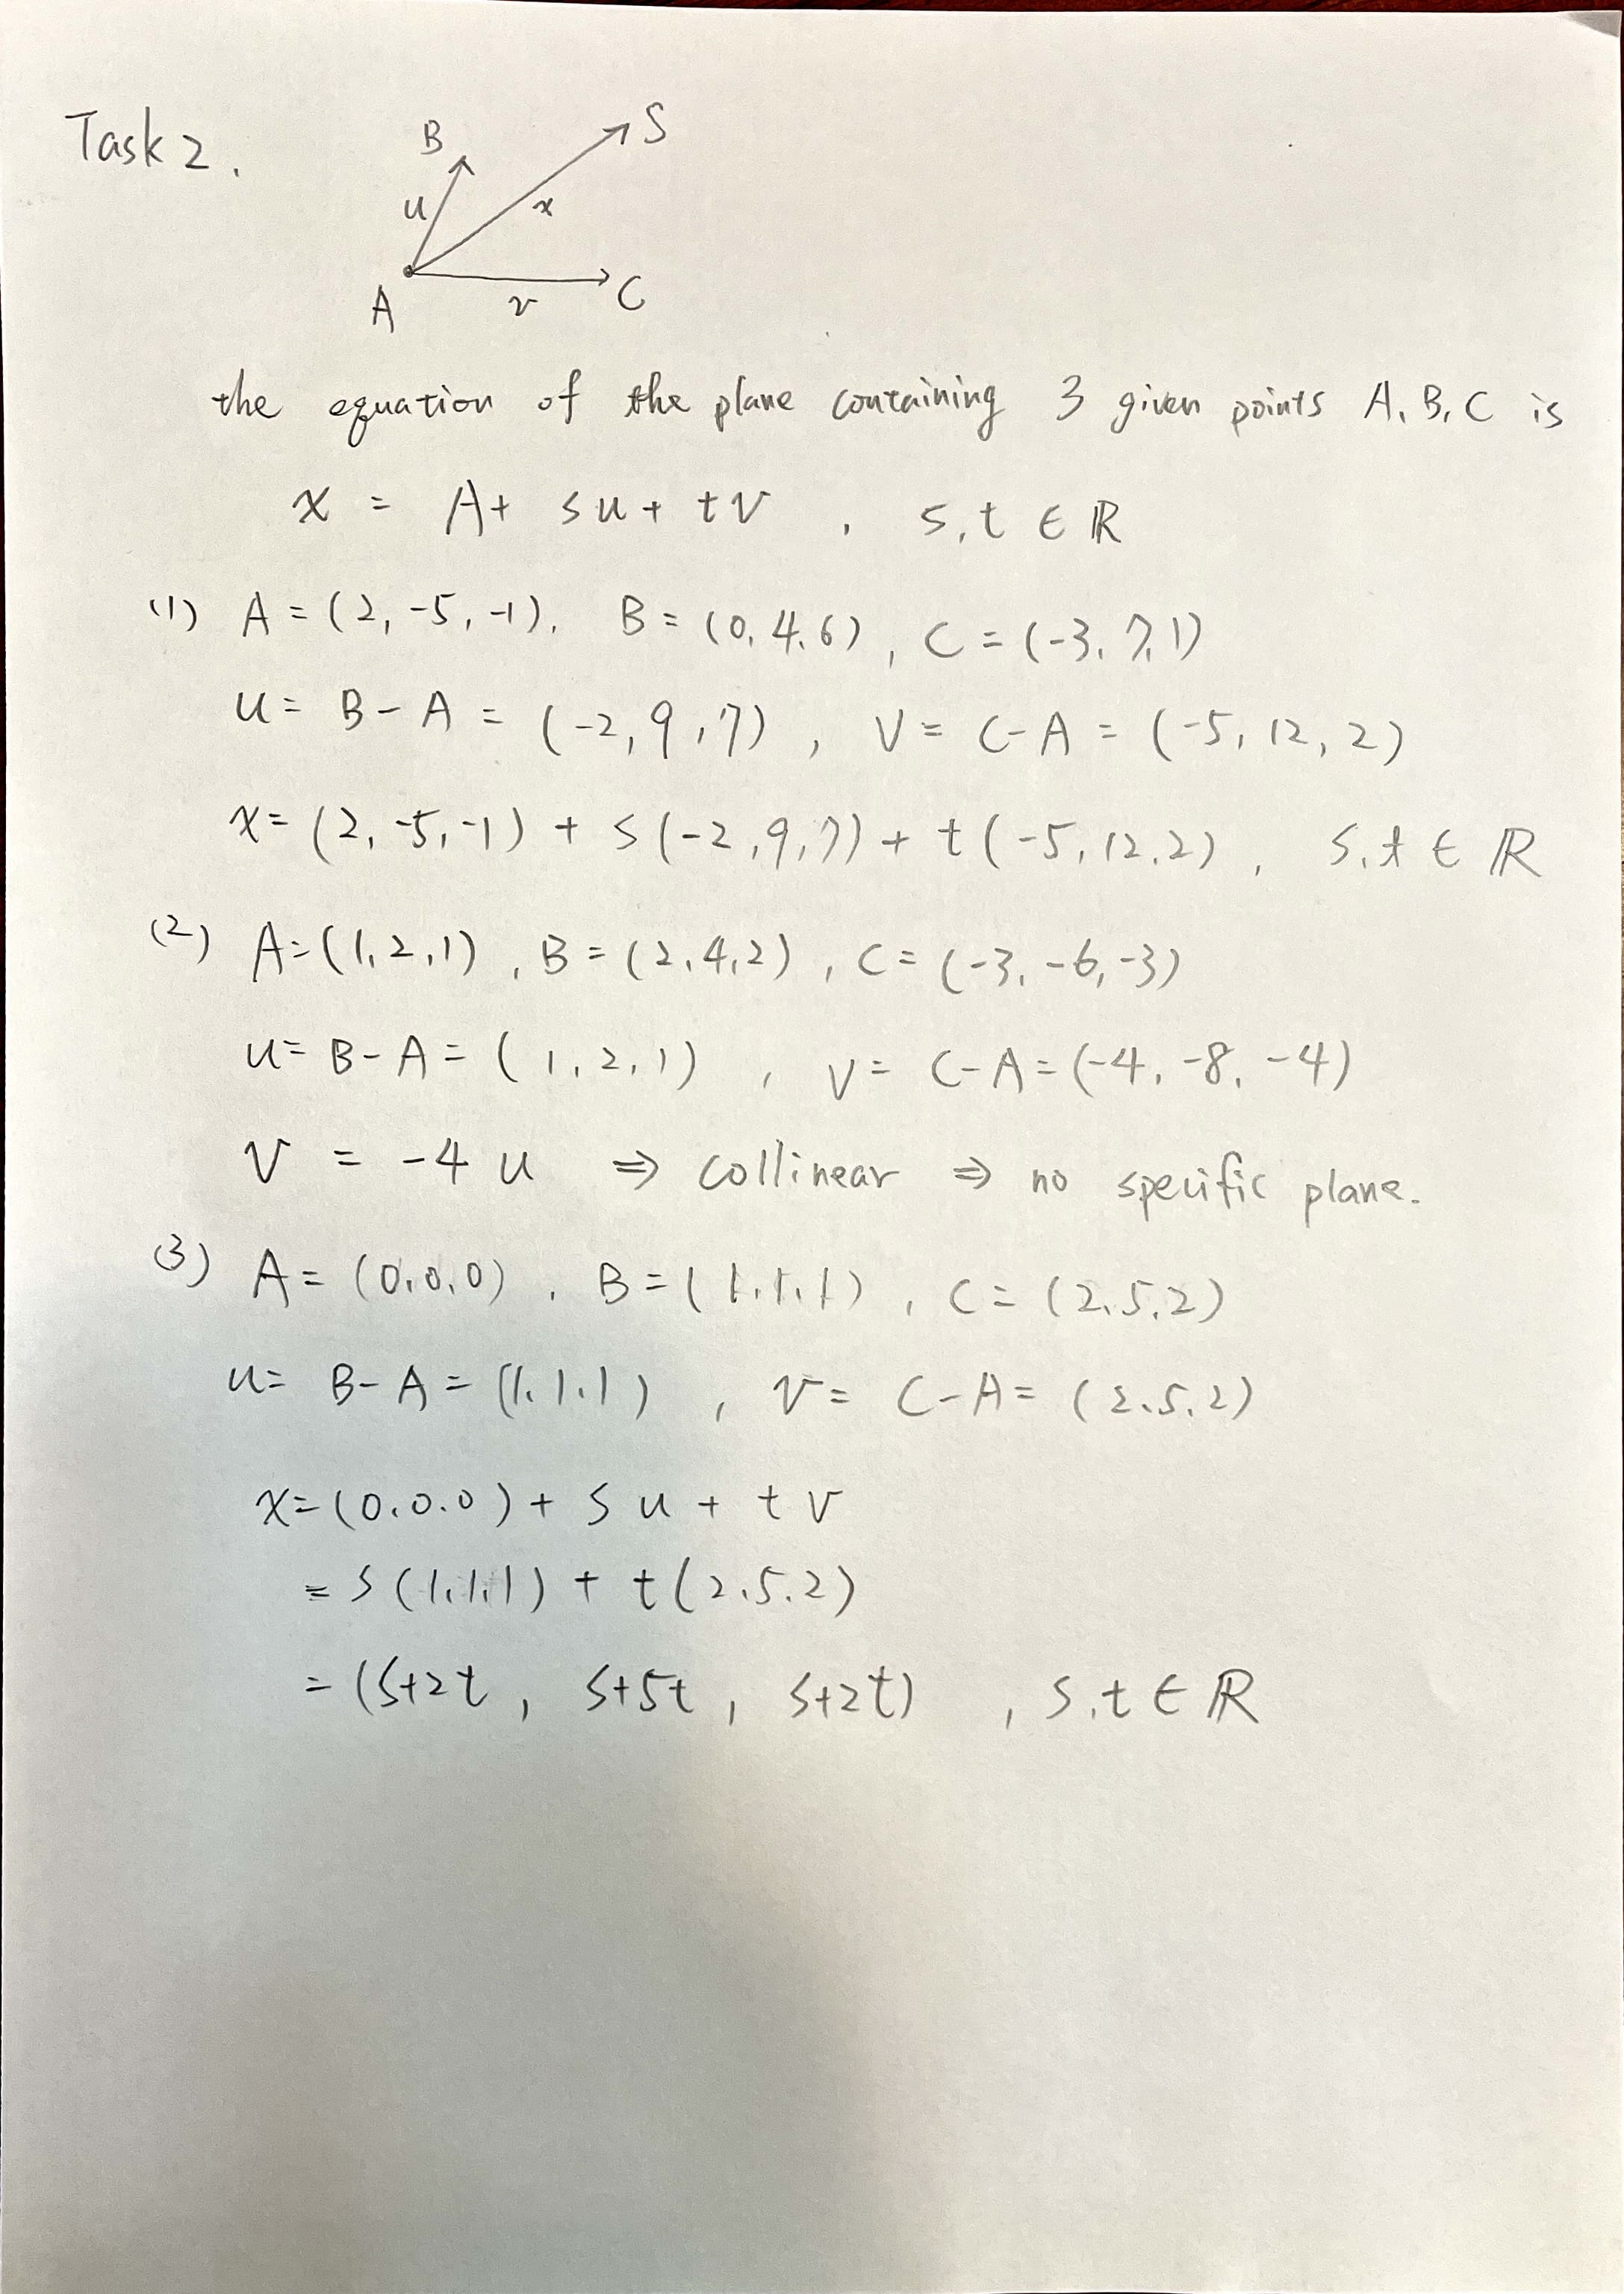 Task 2.
B
S
u
x
A
v
C
the equation of the plane containing 3 given points A, B, C is
x = A + su + tv , s,t ∈ ℝ
(1) A = (2, -5, -1). B = (0, 4, 6) , C = (-3, 7, 1)
u = B - A = (-2, 9, 7) , v = C - A = (-5, 12, 2)
x = (2, -5, -1) + s(-2, 9, 7) + t(-5, 12, 2) , s,t ∈ ℝ
(2) A = (1, 2, 1) , B = (2, 4, 2) , C = (-3, -6, -3)
u = B - A = (1, 2, 1) , v = C - A = (-4, -8, -4)
v = -4 u ⇒ collinear ⇒ no specific plane.
(3) A = (0, 0, 0) , B = (1, 1, 1) , C = (2, 5, 2)
u = B - A = (1, 1, 1) , v = C - A = (2, 5, 2)
x = (0, 0, 0) + s u + t v
= s(1, 1, 1) + t(2, 5, 2)
= (s+2t , s+5t , s+2t) , s,t ∈ ℝ